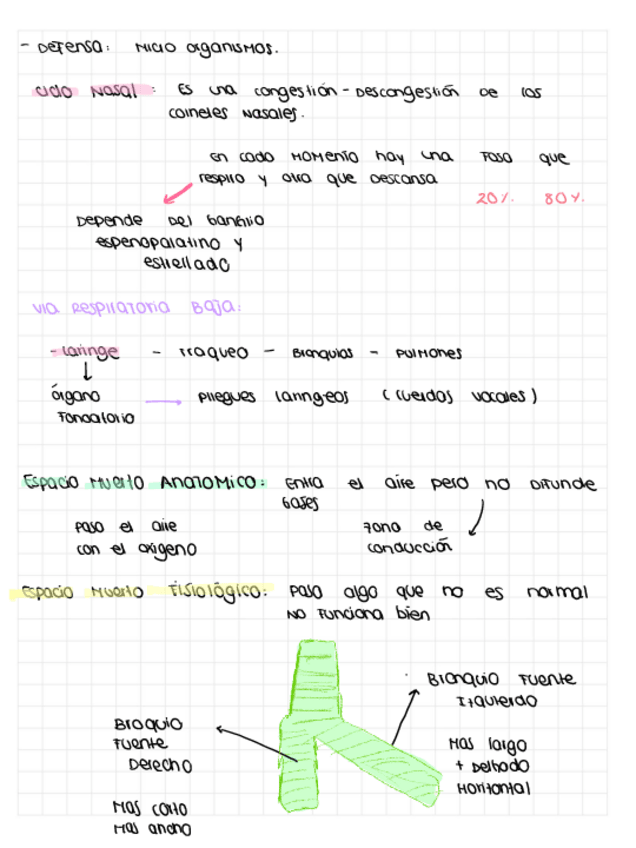 - Defensa: Micro organismos.
Ciclo Nasal: Es una congestión - Descongestión de los
cornetes nasales.
En cada momento hay una fosa que
respira y otra que descansa
20%. 80%.
Depende del ganglio
espenopalatino y
estrellado
Via Respiratoria Baja:
- Laringe - Traquea - Bronquios - Pulmones
órgano → Pliegues laríngeos (cuerdas vocales)
fonoatorio
Espacio Muerto Anatomico: Entra el aire pero no difunde
gases
Pasa el aire zona de
con el oxígeno conducción
Espacio Muerto Fisiológico: Pasa algo que no es normal
No funciona bien
Bronquio Fuente
Izquierdo
Broquio
Fuente
Derecho
Mas largo
+ Delgado
Horizontal
Mas corto
Mas ancho